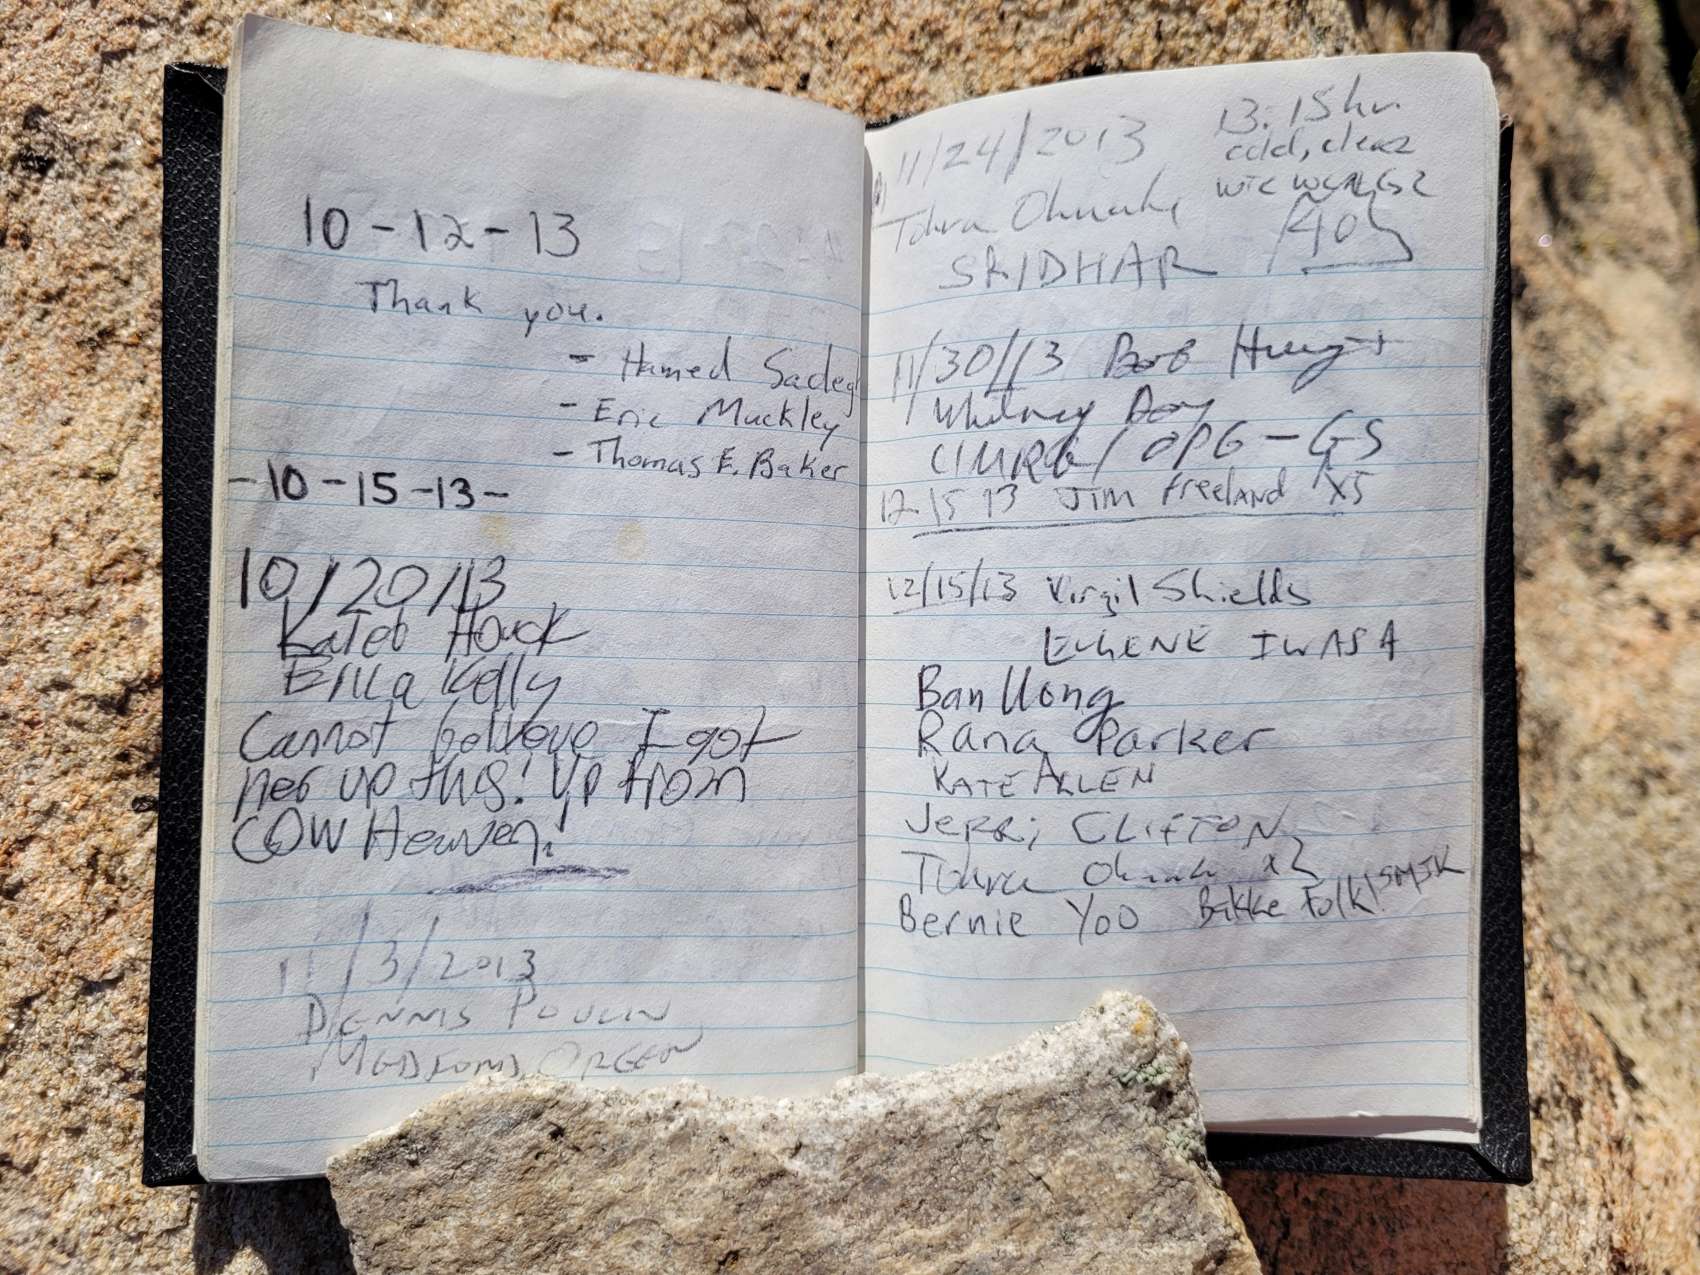 10-12-13
Thank you.
- Hamed Sadeg
- Eric Muckley
- Thomas E. Baker
-10-15-13-
10/20/13
Kaleb Houck
Erica Kelly
Cannot believe I got
her up this! Up from
COW Heaven!
11/3/2013
DENNIS POULIN
MEDFORD, OREGON
11/24/2013
13:15 hr.
cold, clear
Tohru
SRIDHAR
11/30/13 Bob
Whitney
/ OPG-GS
12 15 13 JIM freeLAND X5
12/15/13 Virgil Shields
EUGENE IWASA
Ban
Rana Parker
KATE ALLEN
JERRi CLIFTON
Tohru x2
Bernie Yoo